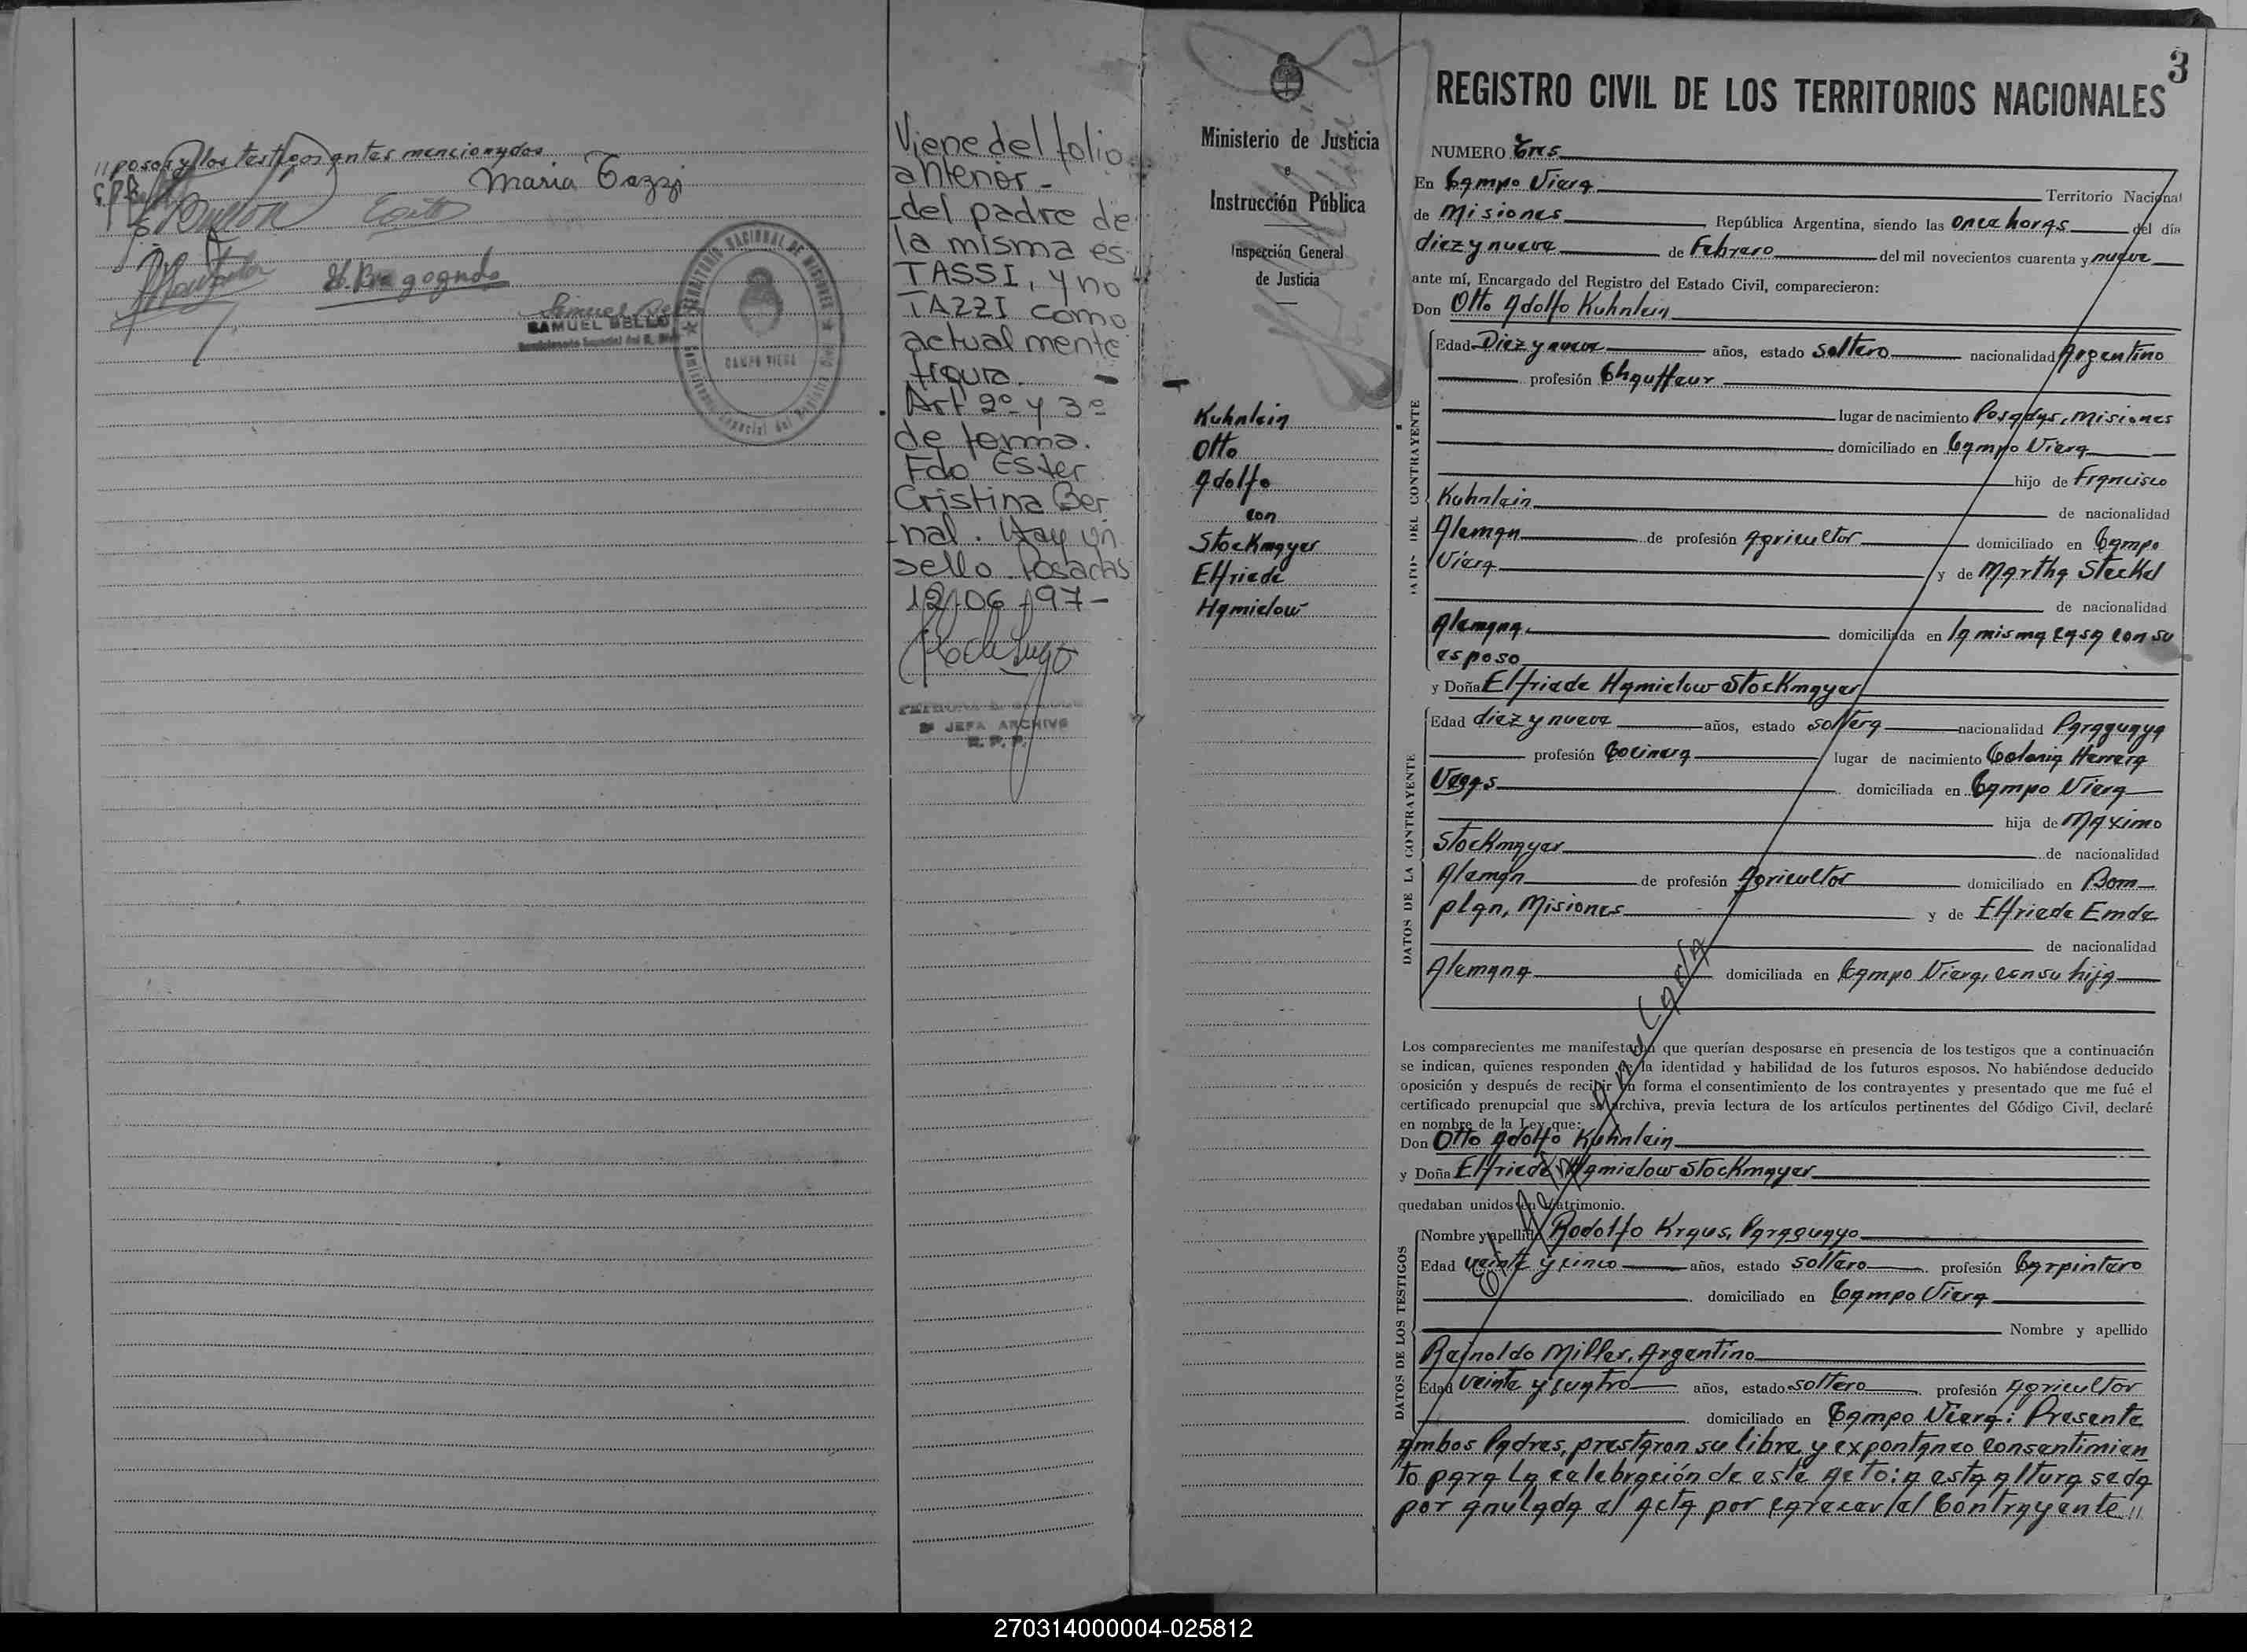 //posos y los testigos antes mencionados
Maria Tazzi
H. Bragogndo
SAMUEL BELLO
TERRITORIO NACIONAL DE MISIONES
CAMPO VIERA
Viene del folio
anterior -
del padre de
la misma es
TASSI, y no
TAZZI como
actualmente
figura. -
Art 2º y 3º
de forma.
Fdo Ester
Cristina Ber
-nal. Hay un
sello. Posadas
12-06-97-
JEFA ARCHIVO
R. P. P.
Ministerio de Justicia
e
Instrucción Pública
Inspección General
de Justicia
Kuhnlein
Otto
Adolfo
con
Stockmayer
Elfriede
Hamielow
3
REGISTRO CIVIL DE LOS TERRITORIOS NACIONALES
NUMERO Tres
En Campo Viera Territorio Nacional
de Misiones República Argentina, siendo las once horas del día
diez y nueve de Febrero del mil novecientos cuarenta y nueve
ante mí, Encargado del Registro del Estado Civil, comparecieron:
Don Otto Adolfo Kuhnlein
DATOS DEL CONTRAYENTE
Edad Diez y nueve años, estado Soltero nacionalidad Argentino
profesión Chauffeur
lugar de nacimiento Posadas, Misiones
domiciliado en Campo Viera
hijo de Francisco
Kuhnlein de nacionalidad
Aleman de profesión Agricultor domiciliado en Campo
Viera y de Martha Steckel
de nacionalidad
Alemana. domiciliada en la misma casa con su
esposo
y Doña Elfriede Hamielow Stockmayer
DATOS DE LA CONTRAYENTE
Edad diez y nueve años, estado soltera nacionalidad Paraguaya
profesión Cocinera lugar de nacimiento Colonia Herrera
Vegas domiciliada en Campo Viera
hija de Maximo
Stockmayer de nacionalidad
Aleman de profesión Agricultor domiciliado en Bom-
plan, Misiones y de Elfriede Emde
de nacionalidad
Alemana domiciliada en Campo Viera, con su hija
Los comparecientes me manifestaron que querían desposarse en presencia de los testigos que a continuación
se indican, quienes responden de la identidad y habilidad de los futuros esposos. No habiéndose deducido
oposición y después de recibir en forma el consentimiento de los contrayentes y presentado que me fué el
certificado prenupcial que se archiva, previa lectura de los artículos pertinentes del Código Civil, declaré
en nombre de la Ley que:
Don Otto Adolfo Kuhnlein
y Doña Elfriede Hamielow Stockmayer
quedaban unidos en Matrimonio.
DATOS DE LOS TESTIGOS
Nombre y apellido Rodolfo Kraus, Paraguayo
Edad veinte y cinco años, estado soltero profesión Carpintero
domiciliado en Campo Viera
Nombre y apellido
Reinoldo Miller, Argentino
Edad veinte y cuatro años, estado soltero profesión Agricultor
domiciliado en Campo Viera: Presente
Ambos Padres, prestaron su libre y expontaneo consentimien
to para la celebración de este Acto: a esta altura se da
por anulada el Acta por carecer el Contrayente //
270314000004-025812